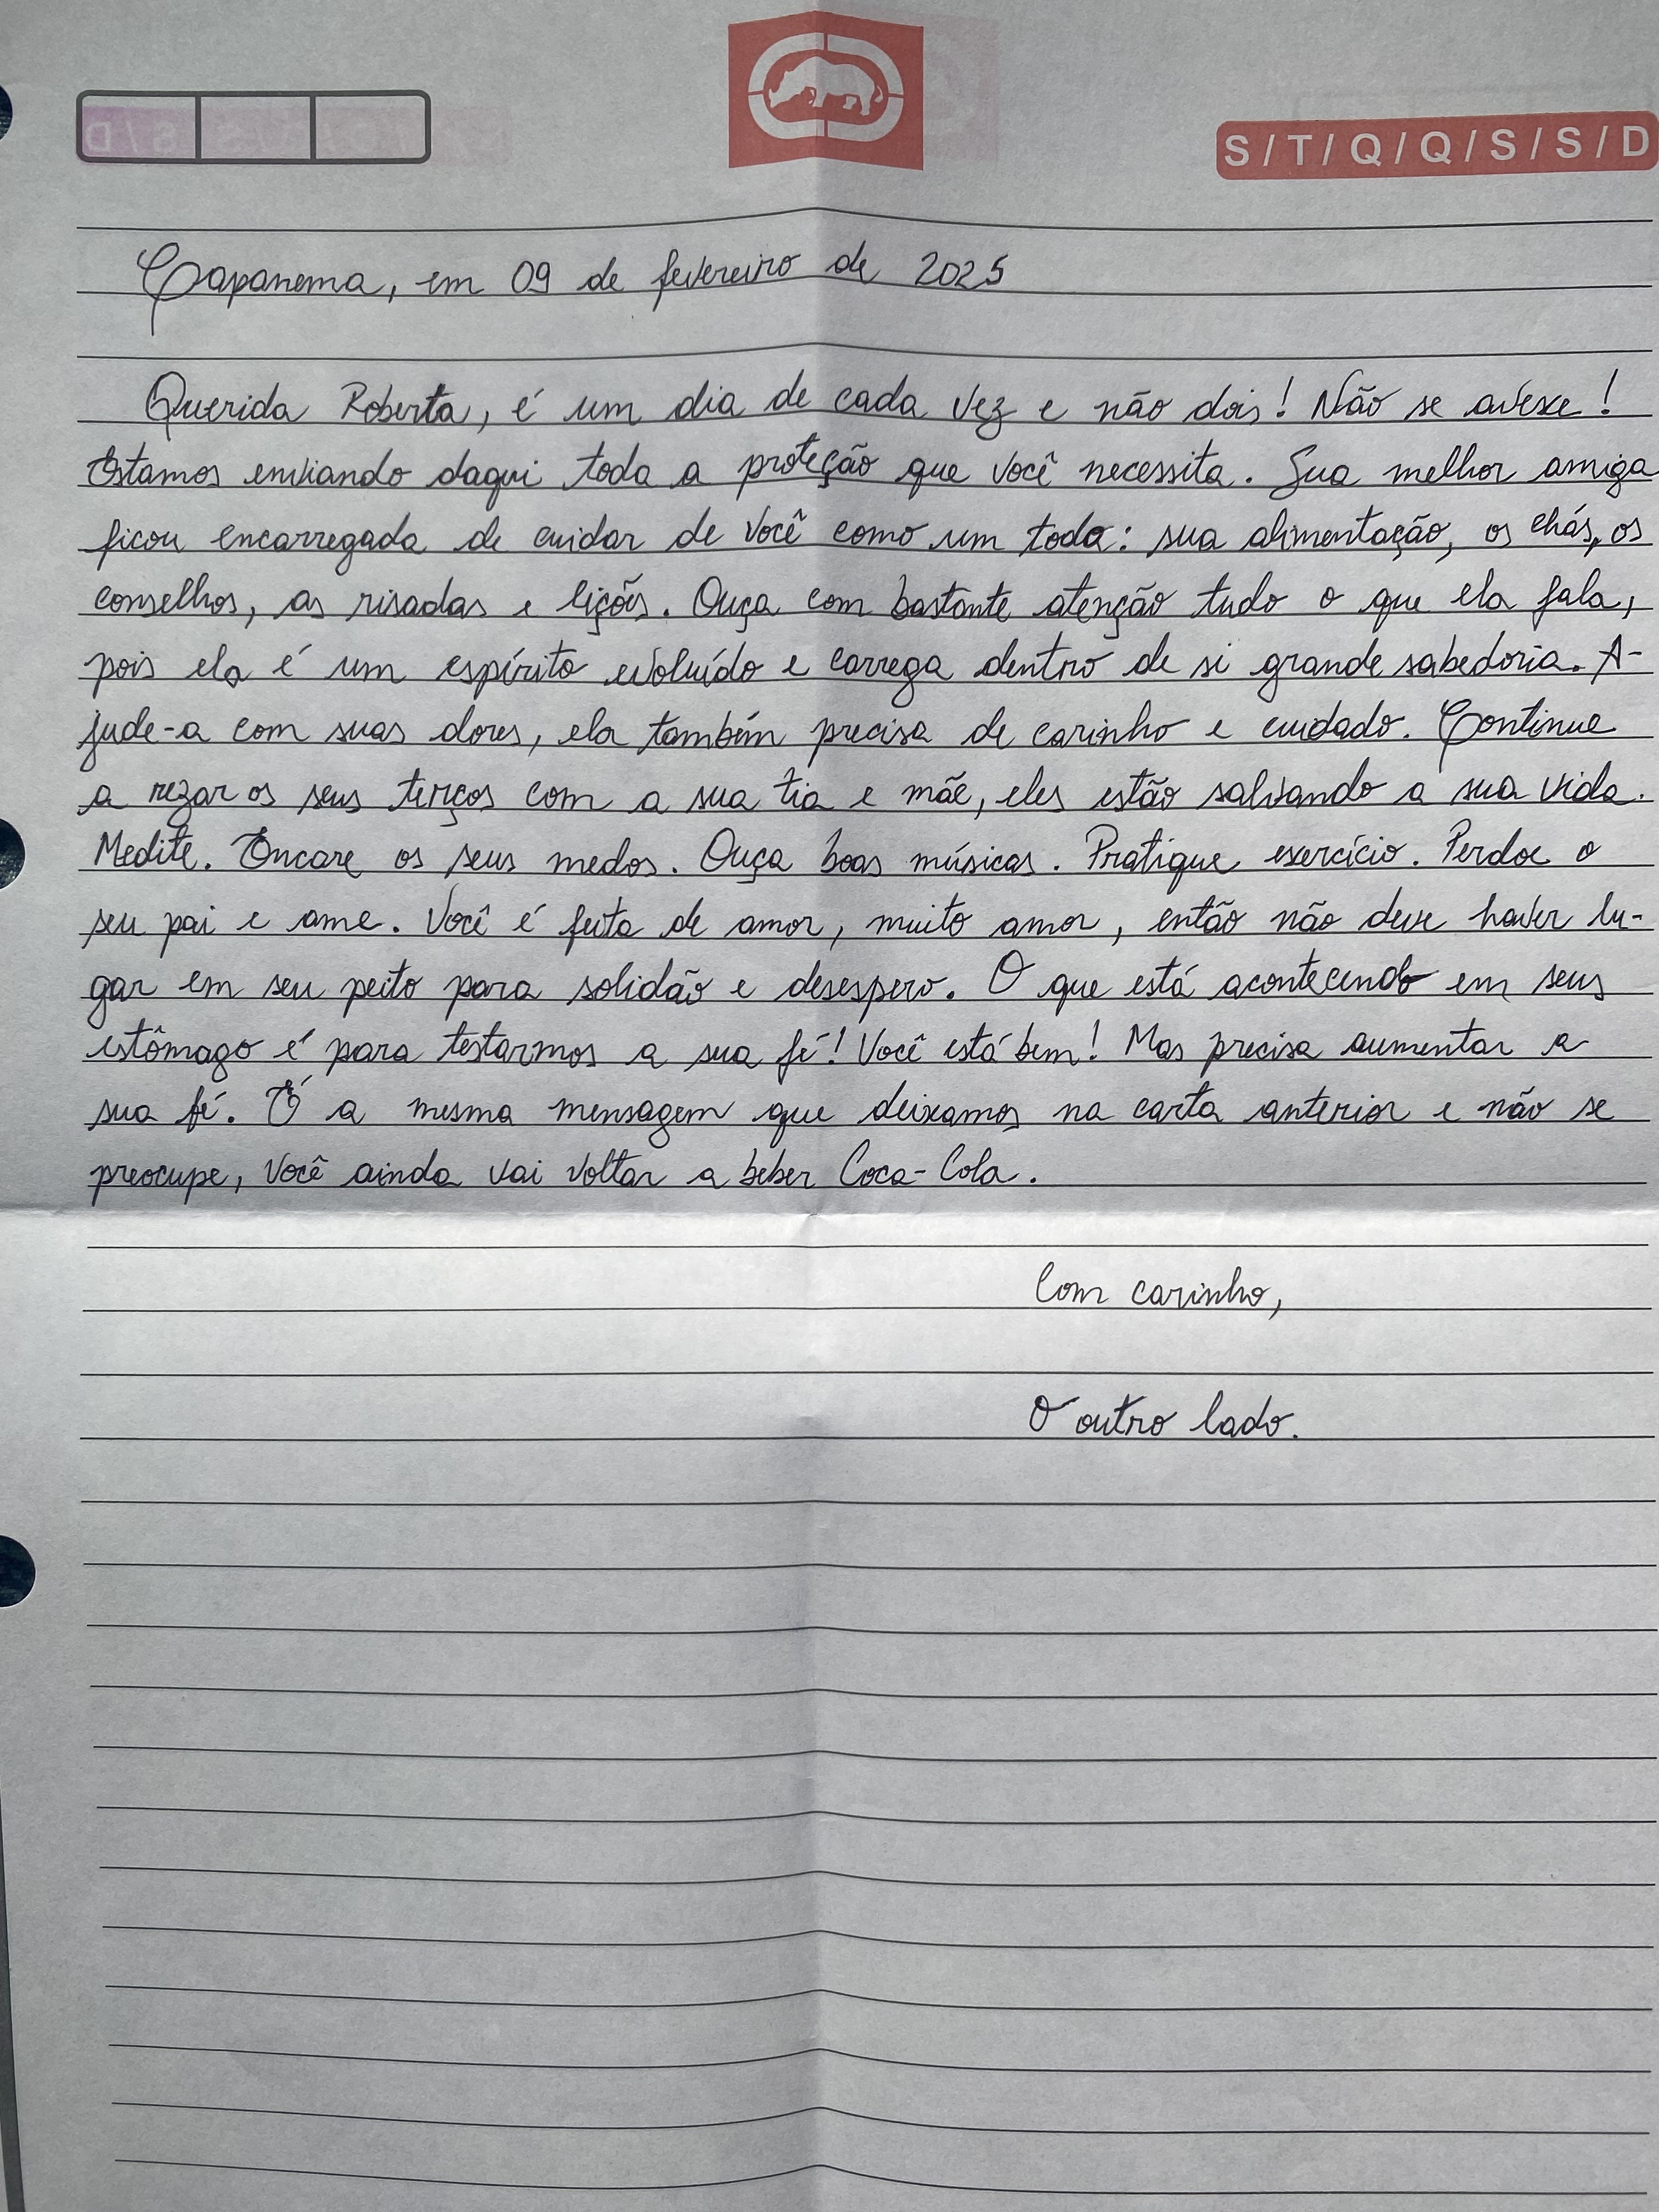 S/T/Q/Q/S/S/D
Capanema, em 09 de fevereiro de 2025
Querida Roberta, é um dia de cada vez e não dois! Não se avexe!
Estamos enviando daqui toda a proteção que você necessita. Sua melhor amiga
ficou encarregada de cuidar de você como um todo: sua alimentação, os chás, os
conselhos, as risadas e lições. Ouça com bastante atenção tudo o que ela fala,
pois ela é um espírito evoluído e carrega dentro de si grande sabedoria. A-
jude-a com suas dores, ela também precisa de carinho e cuidado. Continue
a rezar os seus terços com a sua tia e mãe, eles estão salvando a sua vida.
Medite. Encare os seus medos. Ouça boas músicas. Pratique exercício. Perdoe o
seu pai e ame. Você é feita de amor, muito amor, então não deve haver lu-
gar em seu peito para solidão e desespero. O que está acontecendo em seus
estômago é para testarmos a sua fé! Você está bem! Mas precisa aumentar a
sua fé. É a mesma mensagem que deixamos na carta anterior e não se
preocupe, você ainda vai voltar a beber Coca-Cola.
Com carinho,
O outro lado.